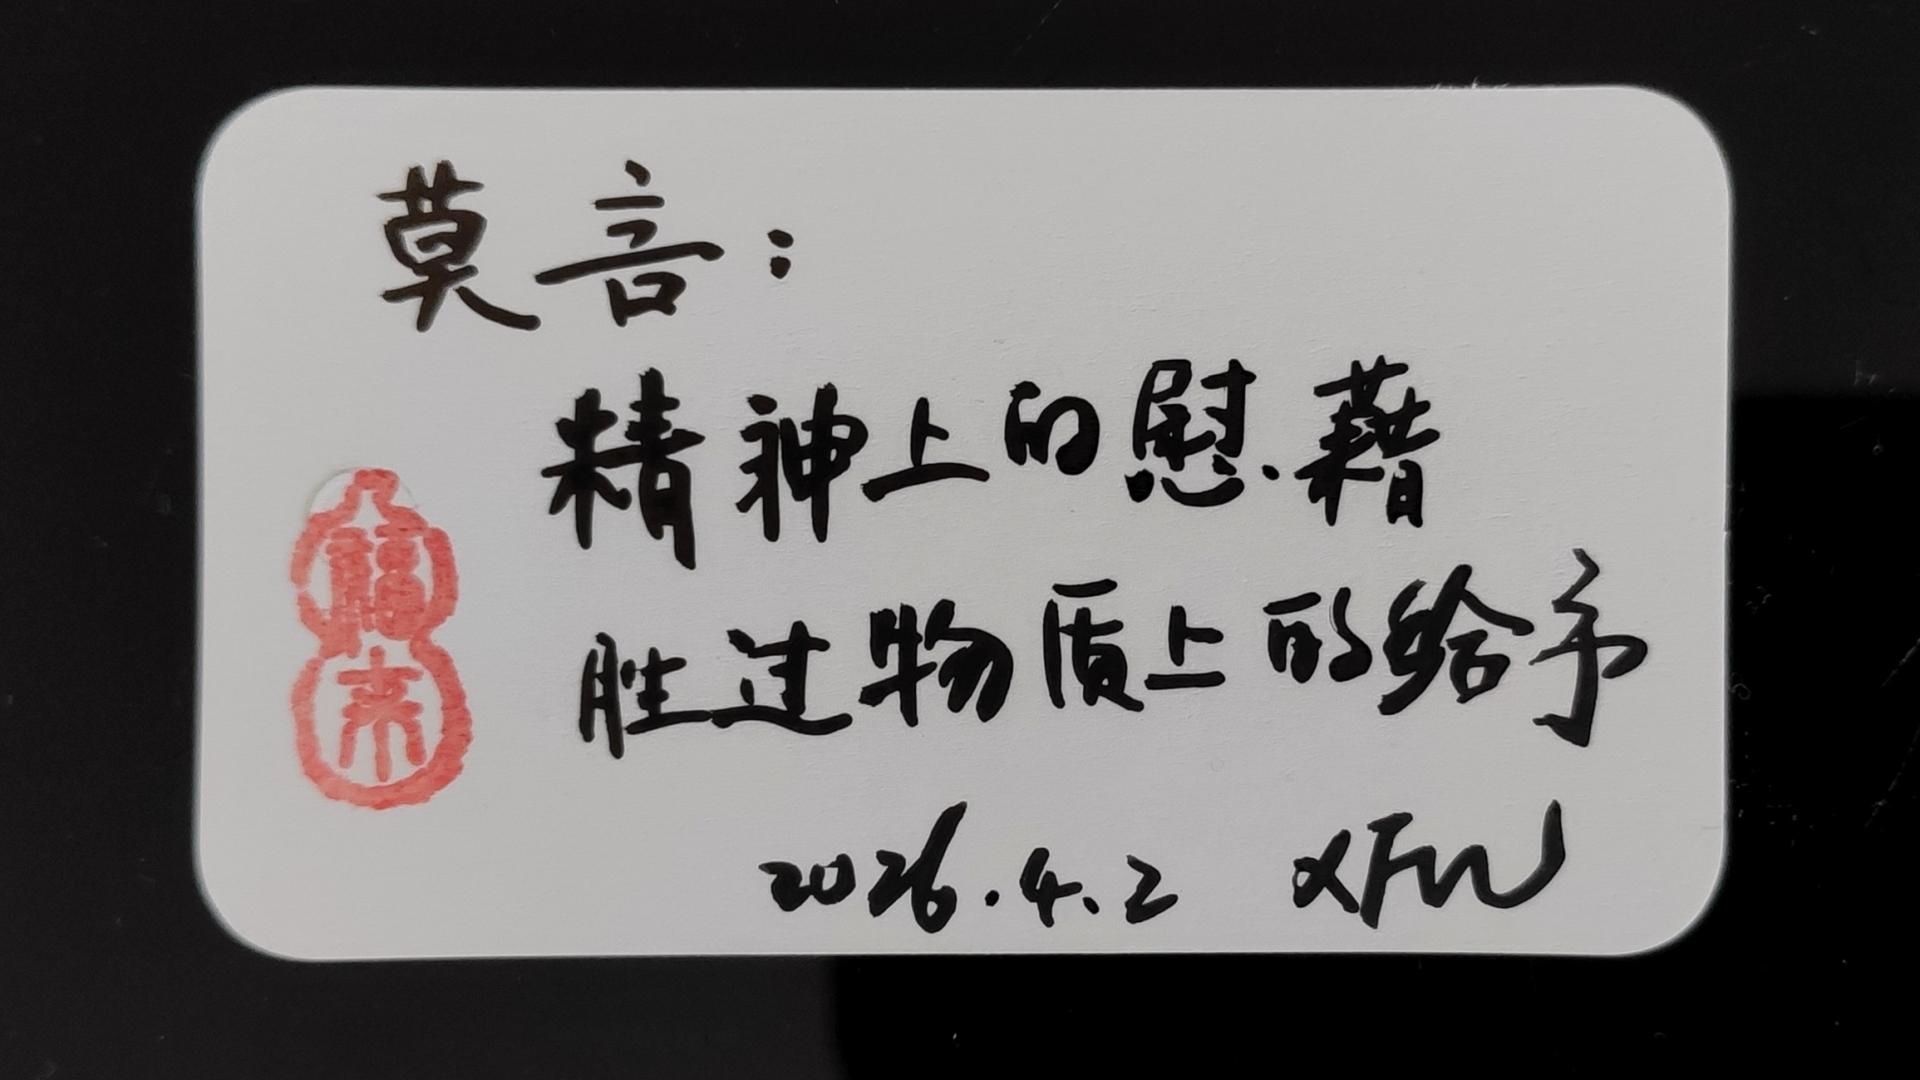 莫言：
精神上的慰藉
胜过物质上的给予
福来
2026.4.2 XFW